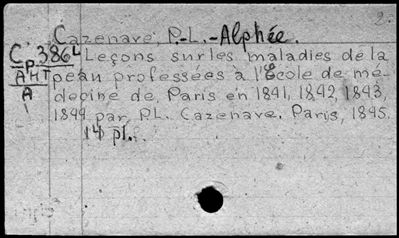 2
Cazenave, P.-L.-Alphée.
C. 386L Leçons sur les maladies de la
AHT peau professées à l'École de mé-
A decine de Paris en 1841, 1842, 1843,
1844 par P.L. Cazenave. Paris, 1845.
14 pl.